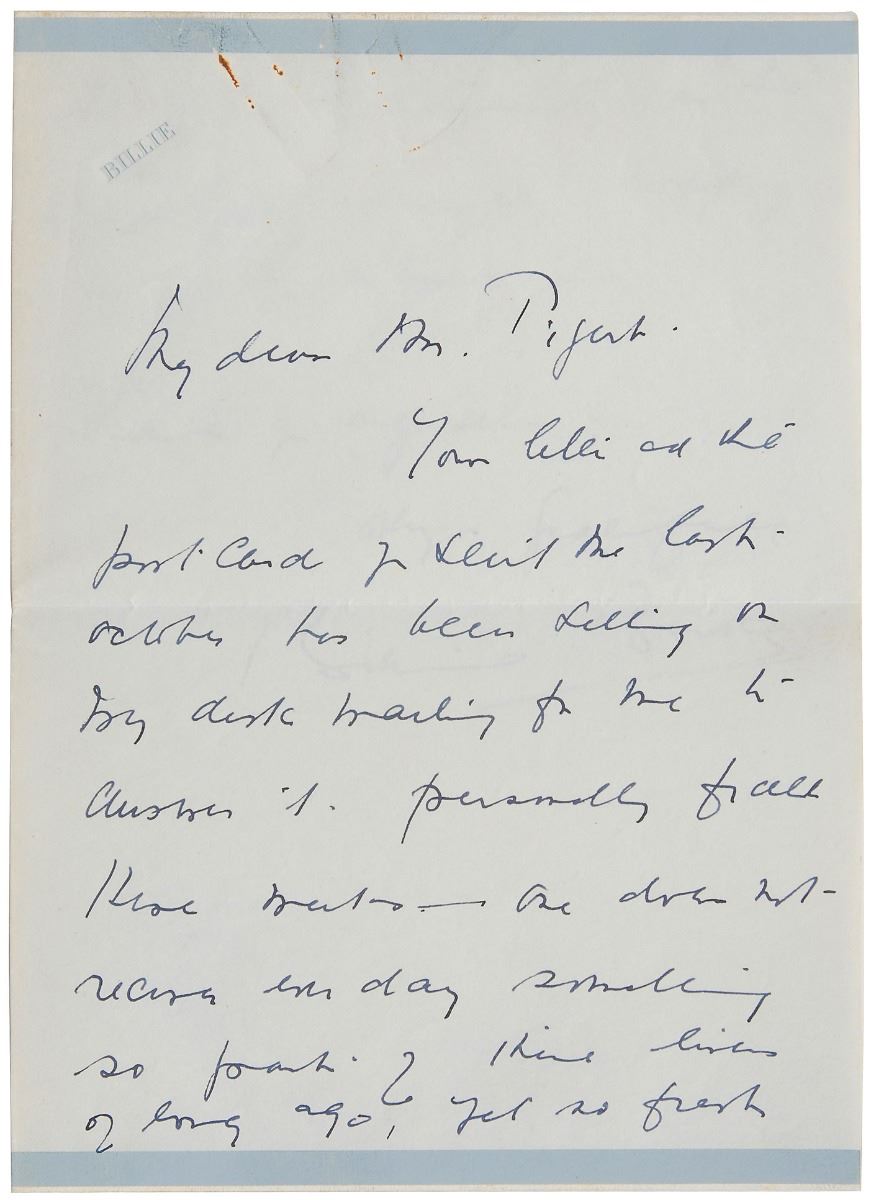 BILLIE
My dear Mr. Pigert.
Your letter and the
post-card you sent me last
october has been setting on
my desk waiting for me to
answer it personally for all
these weeks — one does not
receive every day something
so part of the lives
of long ago, yet so fresh